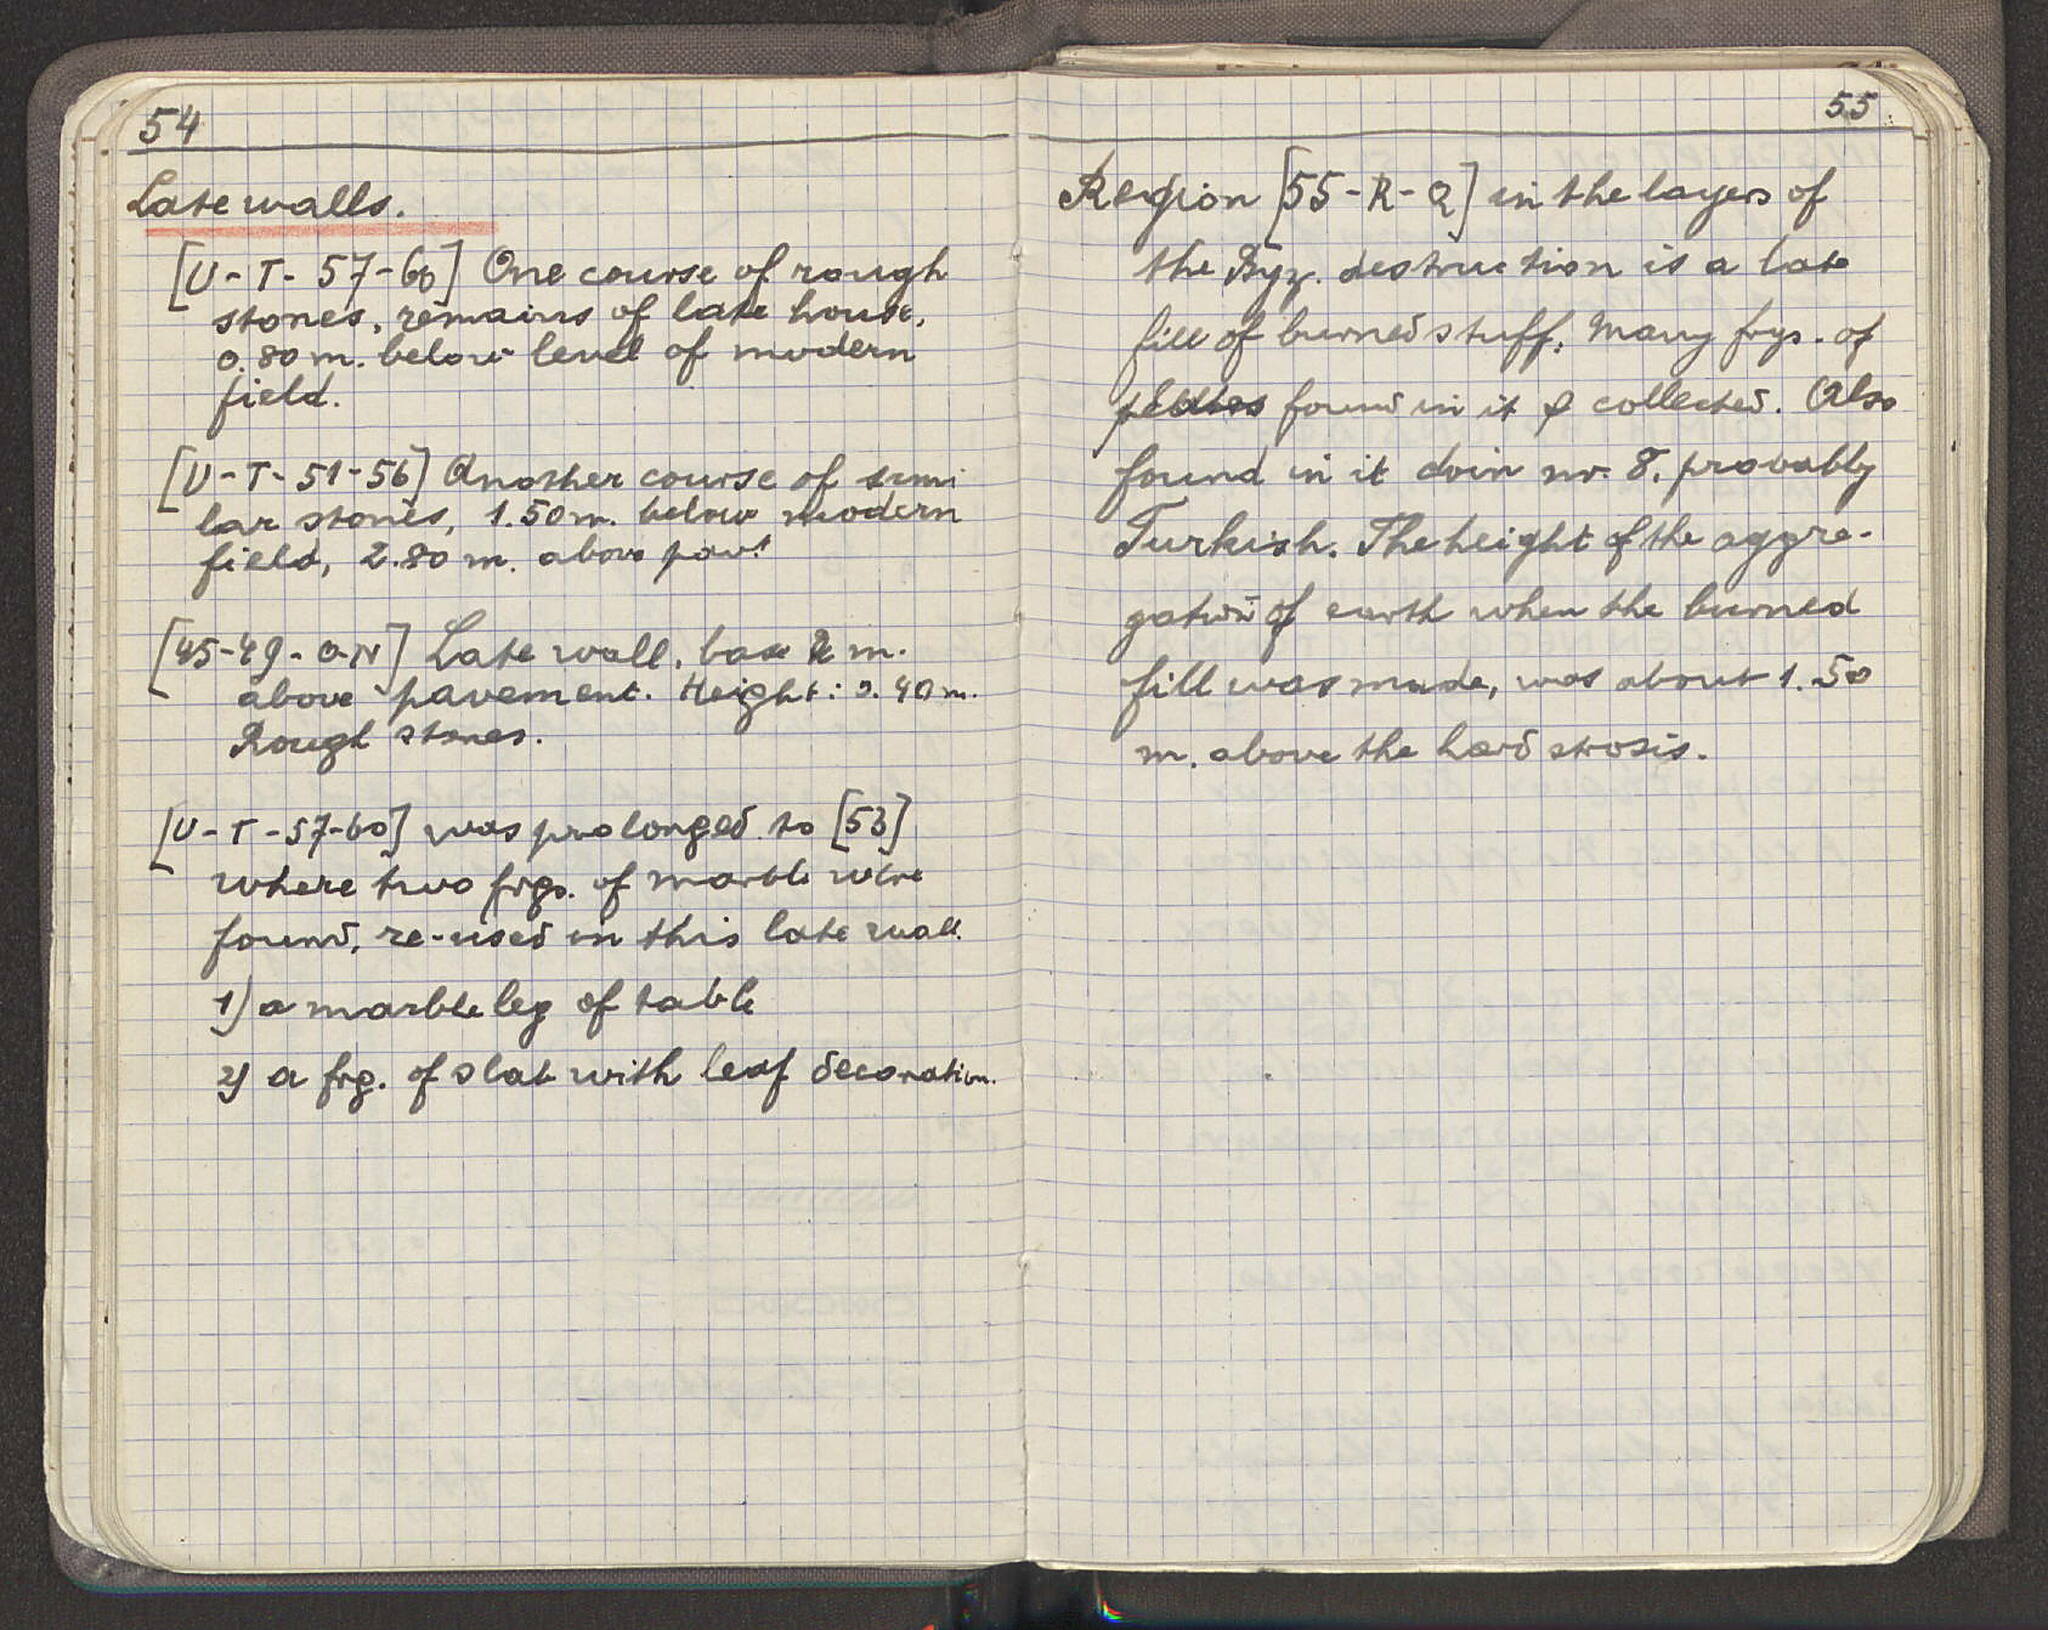 54
Late walls.
[U-T-57-60] One course of rough
stones, remains of late house,
0.80 m. below level of modern
field.
[U-T-51-56] Another course of simi
lar stones, 1.50 m. below modern
field, 2.80 m. above pavt
[45-49-O-N] Late wall, base 2 m.
above pavement. Height: 0.40 m.
Rough stones.
[U-T-57-60] was prolonged to [53]
where two frgs. of marble were
found, re-used in this late wall.
1) a marble leg of table
2) a frg. of slab with leaf decoration.
55
Region [55-R-Q] in the layers of
the Byz. destruction is a late
fill of burned stuff. Many frgs. of
found in it & collected. Also
found in it coin nr. 8, probably
Turkish. The height of the aggre-
gation of earth when the burned
fill was made, was about 1.50
m. above the hard strosis.